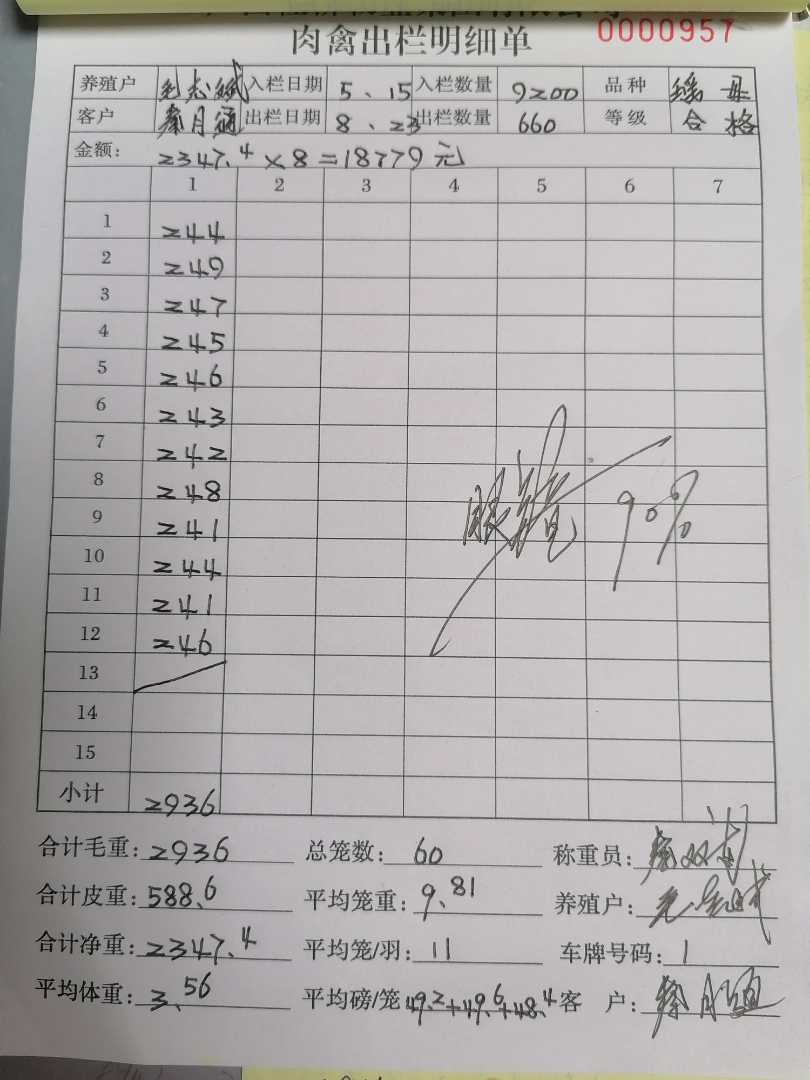 肉禽出栏明细单 0000957
养殖户 毛志斌 入栏日期 5、15 入栏数量 9200 品种 瑶 母
客户 秦月通 出栏日期 8、23 出栏数量 660 等级 合 格
金额: 2347.4×8=18779元
1 2 3 4 5 6 7
1 244
2 249
3 247
4 245
5 246
6 243
7 242
8 248
9 241
10 244
11 241
12 246
13
14
15
90%
小计 2936
合计毛重: 2936 总笼数: 60 称重员:
合计皮重: 588.6 平均笼重: 9.81 养殖户:
合计净重: 2347.4 平均笼/羽: 11 车牌号码: 1
平均体重: 3.56 平均磅/笼 49.2+49.6+48.4 客 户: 秦月通